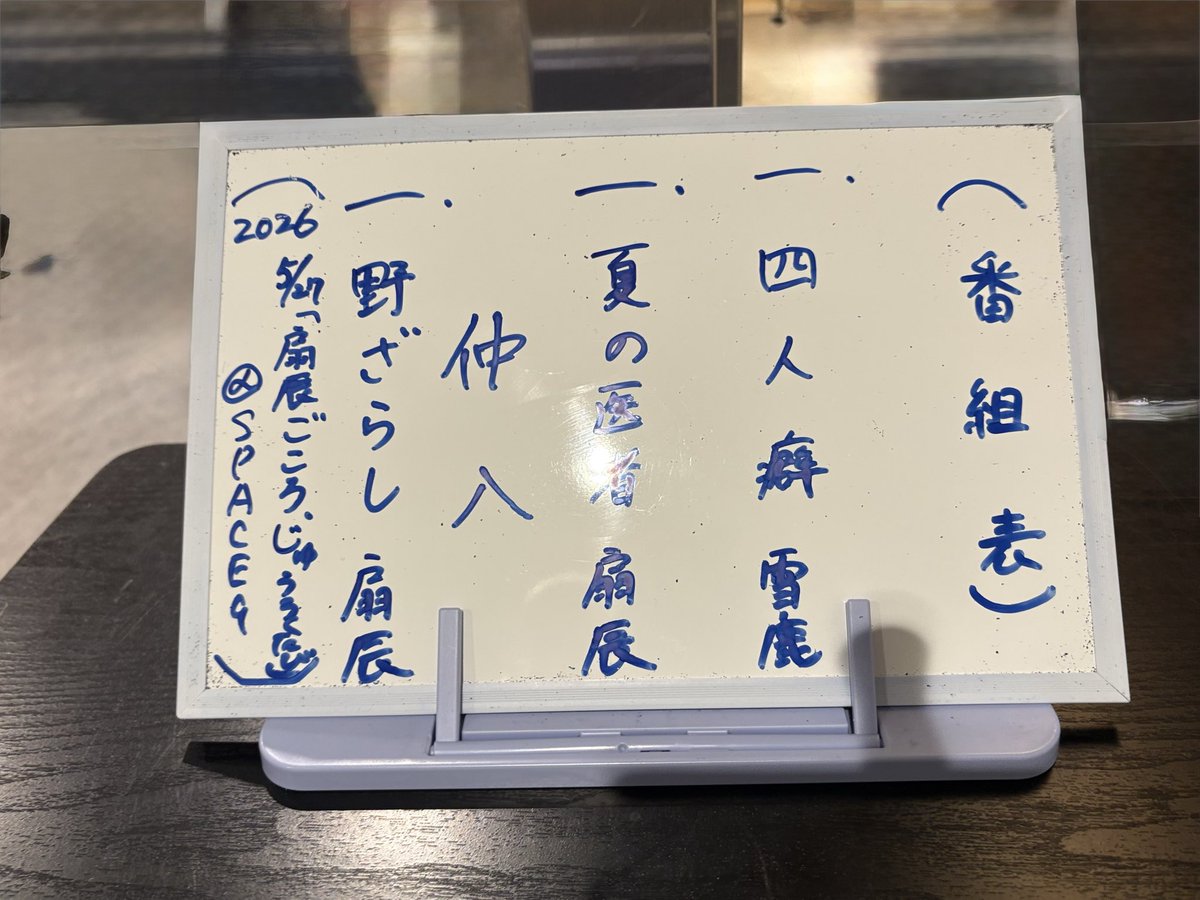 （番組表）
一．四人癖 雪鹿
一．夏の医者 扇辰
仲入
一．野ざらし 扇辰
（2026 5/27「扇辰ごころ、じゅう
@SPACE9）